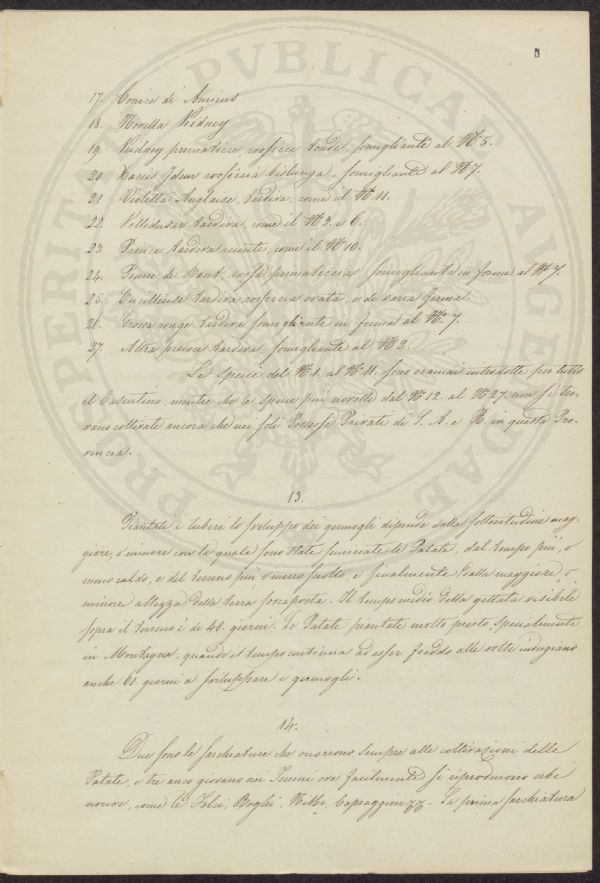 5
17. Cornice di Amicus
18. Novella Kidney
19. Kidney primaticcia rossicce tonde, somigliante al N.º 5.
20. rossiccia bislunga, somigliante al N.º 7.
21. Violetta Anglaise, tardiva, come il N.º 11.
22. tardiva, come il N.º 3. e 6.
23. tardiva come il N.º 10.
24. rossa primaticcia, somigliante in forma al N.º 7.
25. tardiva rossiccia ovata, e di varia forma.
26. Grossa rouge tardiva somigliante in forma al N.º 7.
27. Altra precoce tardiva, somigliante al N.º 2.
Le specie dal N.º 1. al N.º 11. sono oramai introdotte per tutto
il Casentino, mentre che le specie più novelle dal N.º 12. al N.º 27. non si tro-
vano coltivate ancora che nei soli Possessi Privati di S. A. e R. in questa Pro-
vincia.
13.
Piantati i tuberi lo sviluppo dei germogli dipende dalla sollecitudine mag-
giore, o minore con la quale sono state seminate le Patate, dal tempo più, o
meno caldo, e dal terreno più, o meno sciolto, e finalmente dalla maggiore, o
minore altezza della terra sovrapposta. Il tempo medio della gettata visibile
sopra il terreno è di 40. giorni. Le Patate piantate molto presto specialmente
in Montagna, quando il tempo continua ad esser freddo alle volte indugiano
anche 60. giorni a sviluppare i germogli.
14.
Due sono le sarchiature che occorrono sempre alle coltivazioni delle
Patate, e tre anco giovano nei Terreni ove facilmente si riproducono erbe
nocive, come le Felci, Vecchie, Capraggini &c. La prima sarchiatura
PROSPERITATI PVBLICAE AVGENDAE